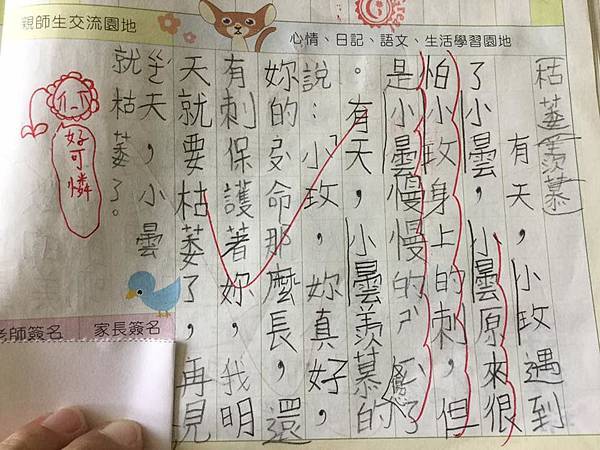 心情、日記、語文、生活學習園地
親師生交流園地
枯萎羨慕
有天,小玫遇到
了小曇,小曇原來很
怕小玫身上的刺,但
是小曇慢慢的ㄕ了
。有天,小曇羨慕的
說:「小玫,妳真好,
妳的命那麼長,還
有刺保護著妳,我明
天就要枯萎了,再見
天,小曇
就枯萎了。
好可憐
家長簽名
老師簽名